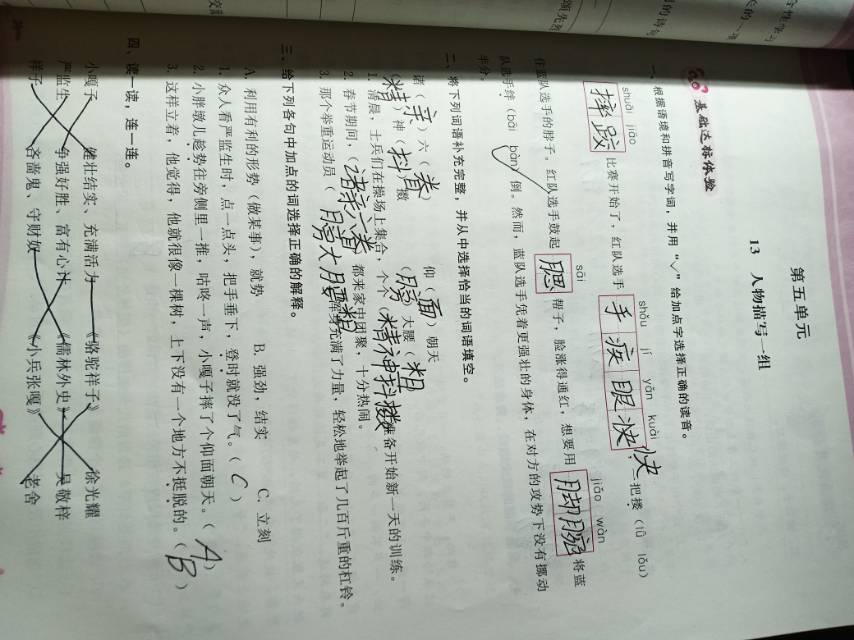 第五单元
13 人物描写一组
基础达标体验
一、根据语境和拼音写字词，并用“√”给加点字选择正确的读音。
shuāi jiāo shǒu jí yǎn kuài
摔跤 比赛开始了，红队选手 手疾眼快 快 一把搂（lǜ lǒu）
sāi jiǎo wàn
住蓝队选手的脖子。红队选手鼓起 腮 帮子，脸涨得通红，想要用 脚腕 将蓝
队选手绊（bāi bàn√）倒。然而，蓝队选手凭着更强壮的身体，在对方的攻势下没有挪动
半分。
二、将下列词语补充完整，并从中选择恰当的词语填空。
诸（亲）六（眷） 仰（面）朝天
（精）神（抖）擞 （膀）大腰（粗）
1. 清晨，士兵们在操场上集合，个个（精神抖擞 准备开始新一天的训练。
2. 春节期间，（诸亲六眷）都来家中团聚，十分热闹。
3. 那个举重运动员（膀大腰粗 浑身充满了力量，轻松地举起了几百斤重的杠铃。
三、给下列各句中加点的词选择正确的解释。
A. 利用有利的形势（做某事），就势 B. 强劲，结实 C. 立刻
1. 众人看严监生时，点一点头，把手垂下，登时就没了气。（C）
2. 小胖墩儿趁势往旁侧里一推，咕咚一声，小嘎子摔了个仰面朝天。（A）
3. 这样立着，他觉得，他就很像一棵树，上下没有一个地方不挺脱的。（B）
四、读一读，连一连。
小嘎子 健壮结实、充满活力 《骆驼祥子》 徐光耀
严监生 争强好胜、富有心计 《儒林外史》 吴敬梓
祥子 吝啬鬼、守财奴 《小兵张嘎》 老舍